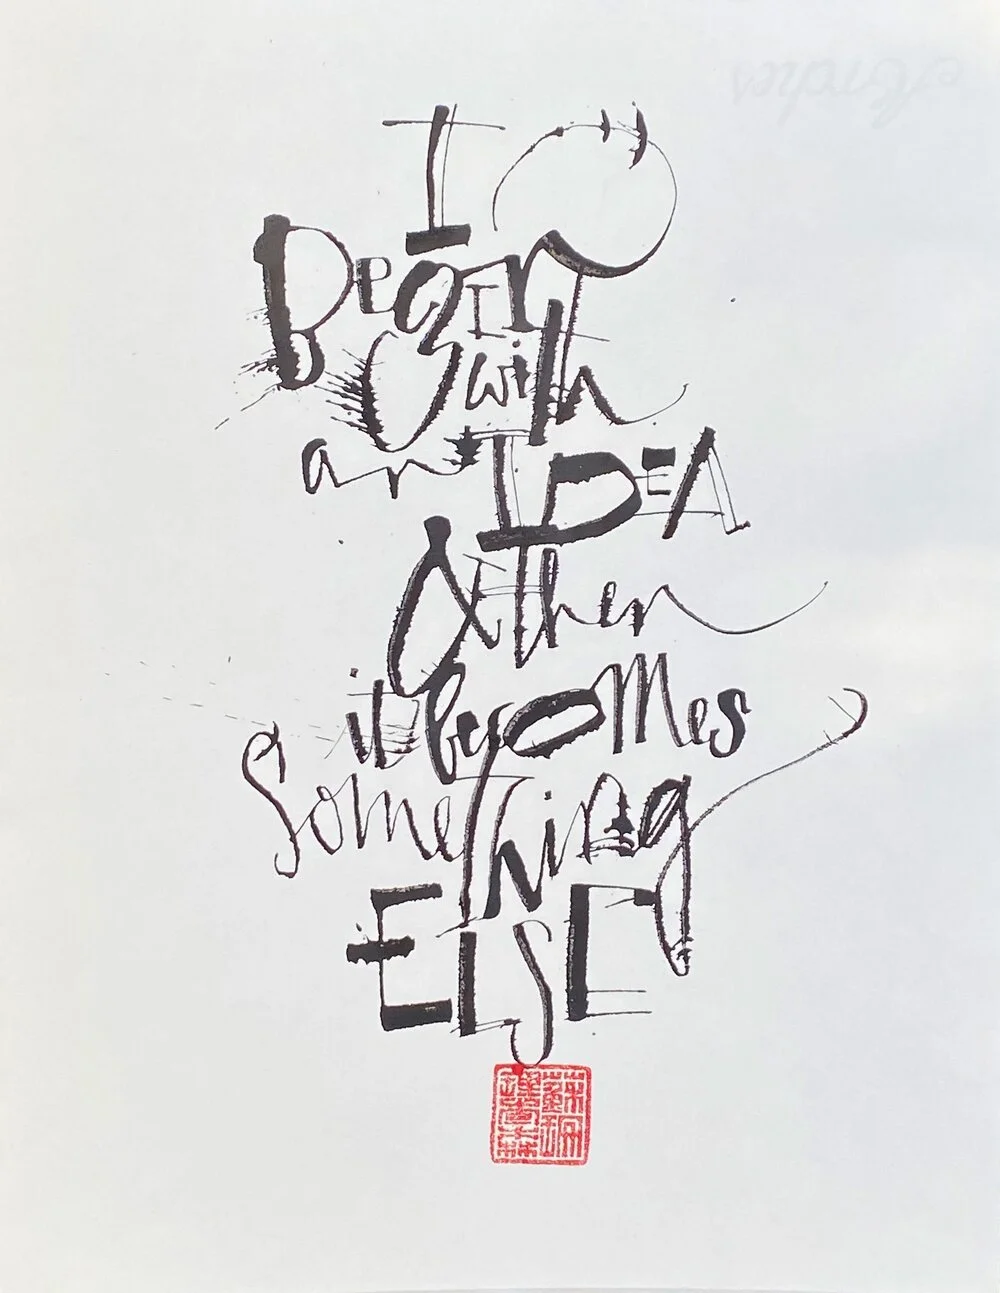 I
Begin
with
an IDEA
& then
it becomes
Something
ELSE